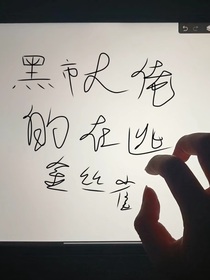 黑市大俺
的在逃
金丝雀